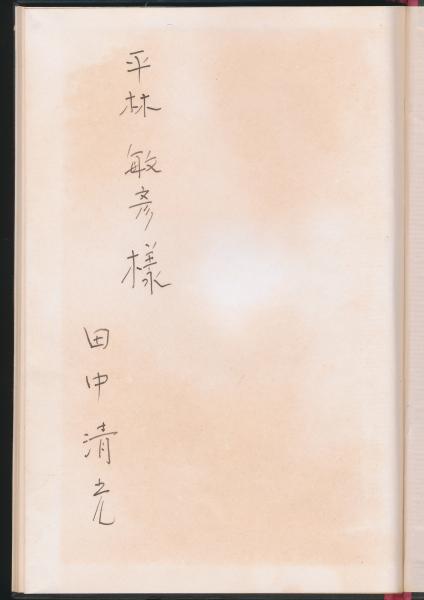 平林敏彦様
田中清光